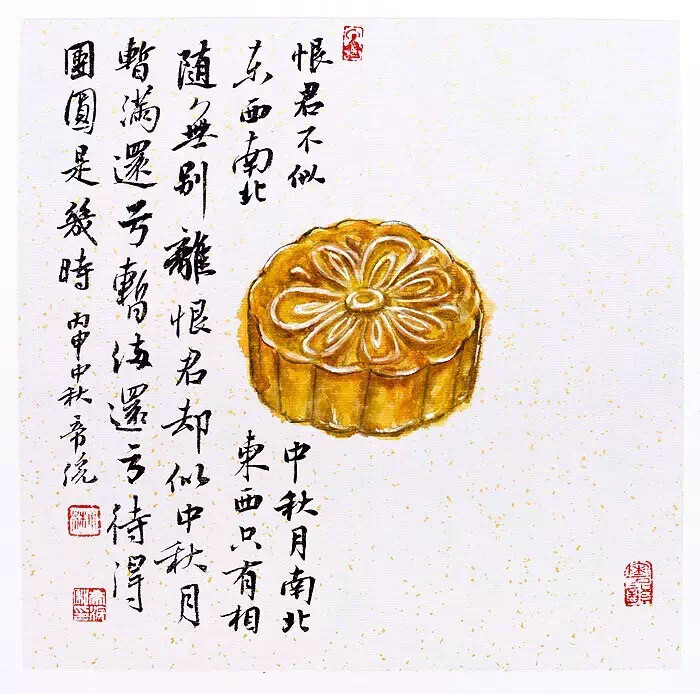 恨君不似中秋月南北
东西南北東西只有相
随無别離恨君却似中秋月
暫滿還亏暫满還亏待得
團圓是幾時
丙申中秋